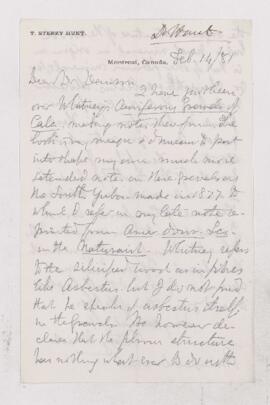 T. STERRY HUNT.
Dr Hunt
Montreal, Canada,
Feb. 14/81
Dear Dr.
I have just been
over Whitney's Auriferous Gravels of
Cala. making notes therefrom. The
book is very meagre & I mean to put
into shape my own much more
extended notes on these gravels on
the South Yuba made in 1877 to
which I refer in my late note re-
printed from Amer Jour Sci
in the Naturalist. Whitney refers
to the silicified wood as in fibres
like Asbestus. but I do not find
that he speaks of asbestus itself
in the gravels. He however de-
clares that the fibrous structure
has nothing what ever to do with